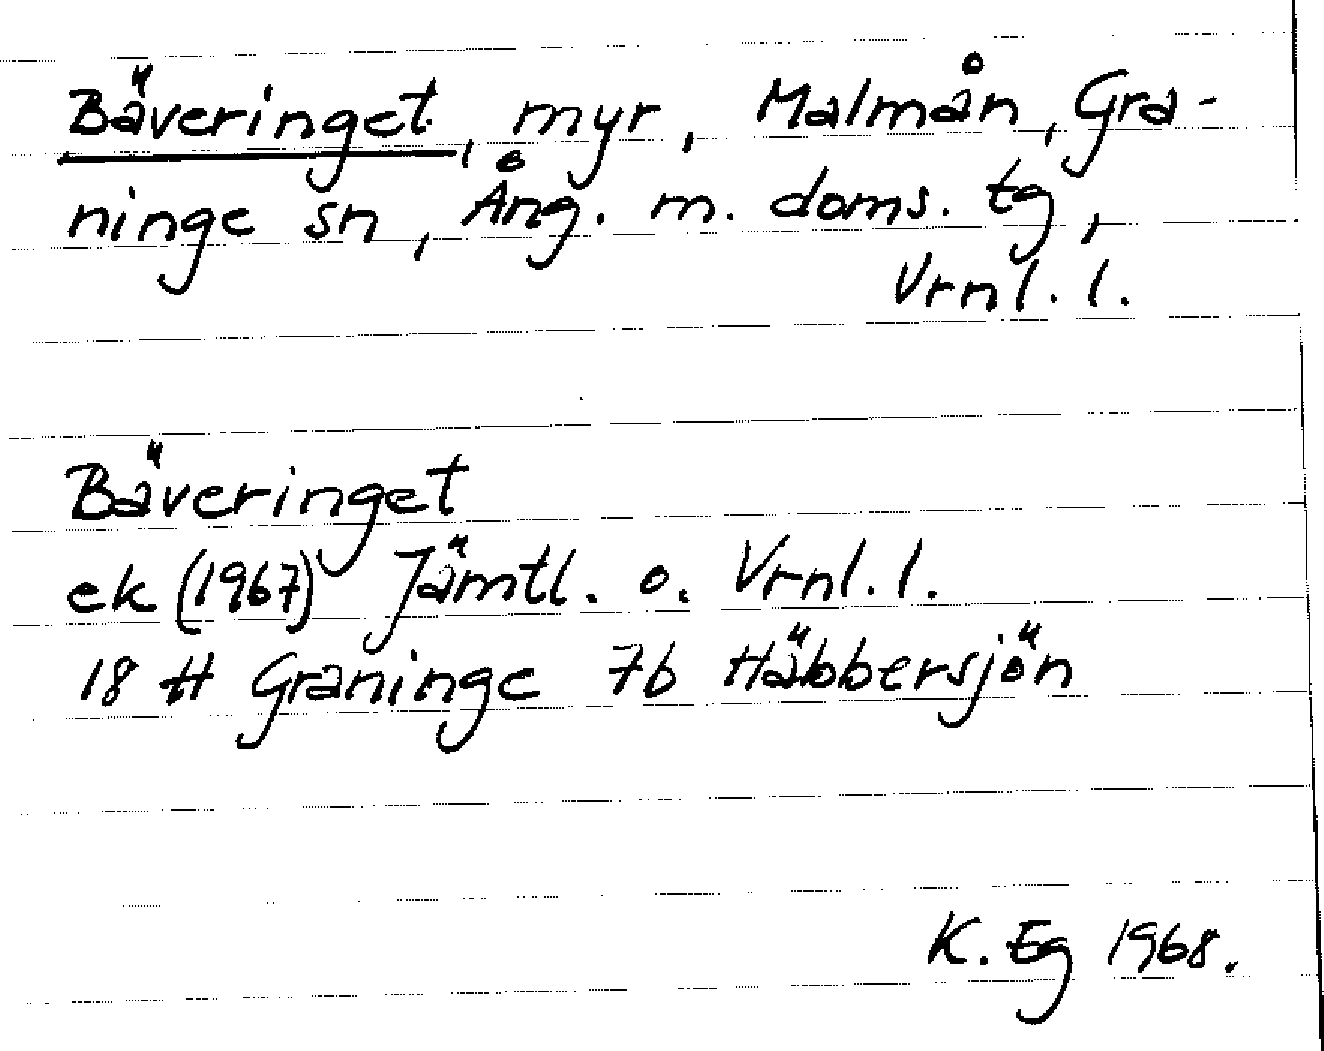 Bäveringet, myr, Malmån, Gra-
ninge sn, Ång. m. doms. tg,
Vrnl. l.
Bäveringet
ek (1967) Jämtl. o. Vrnl. l.
18 H Graninge 7b Häbbersjön
K. Eg 1968.